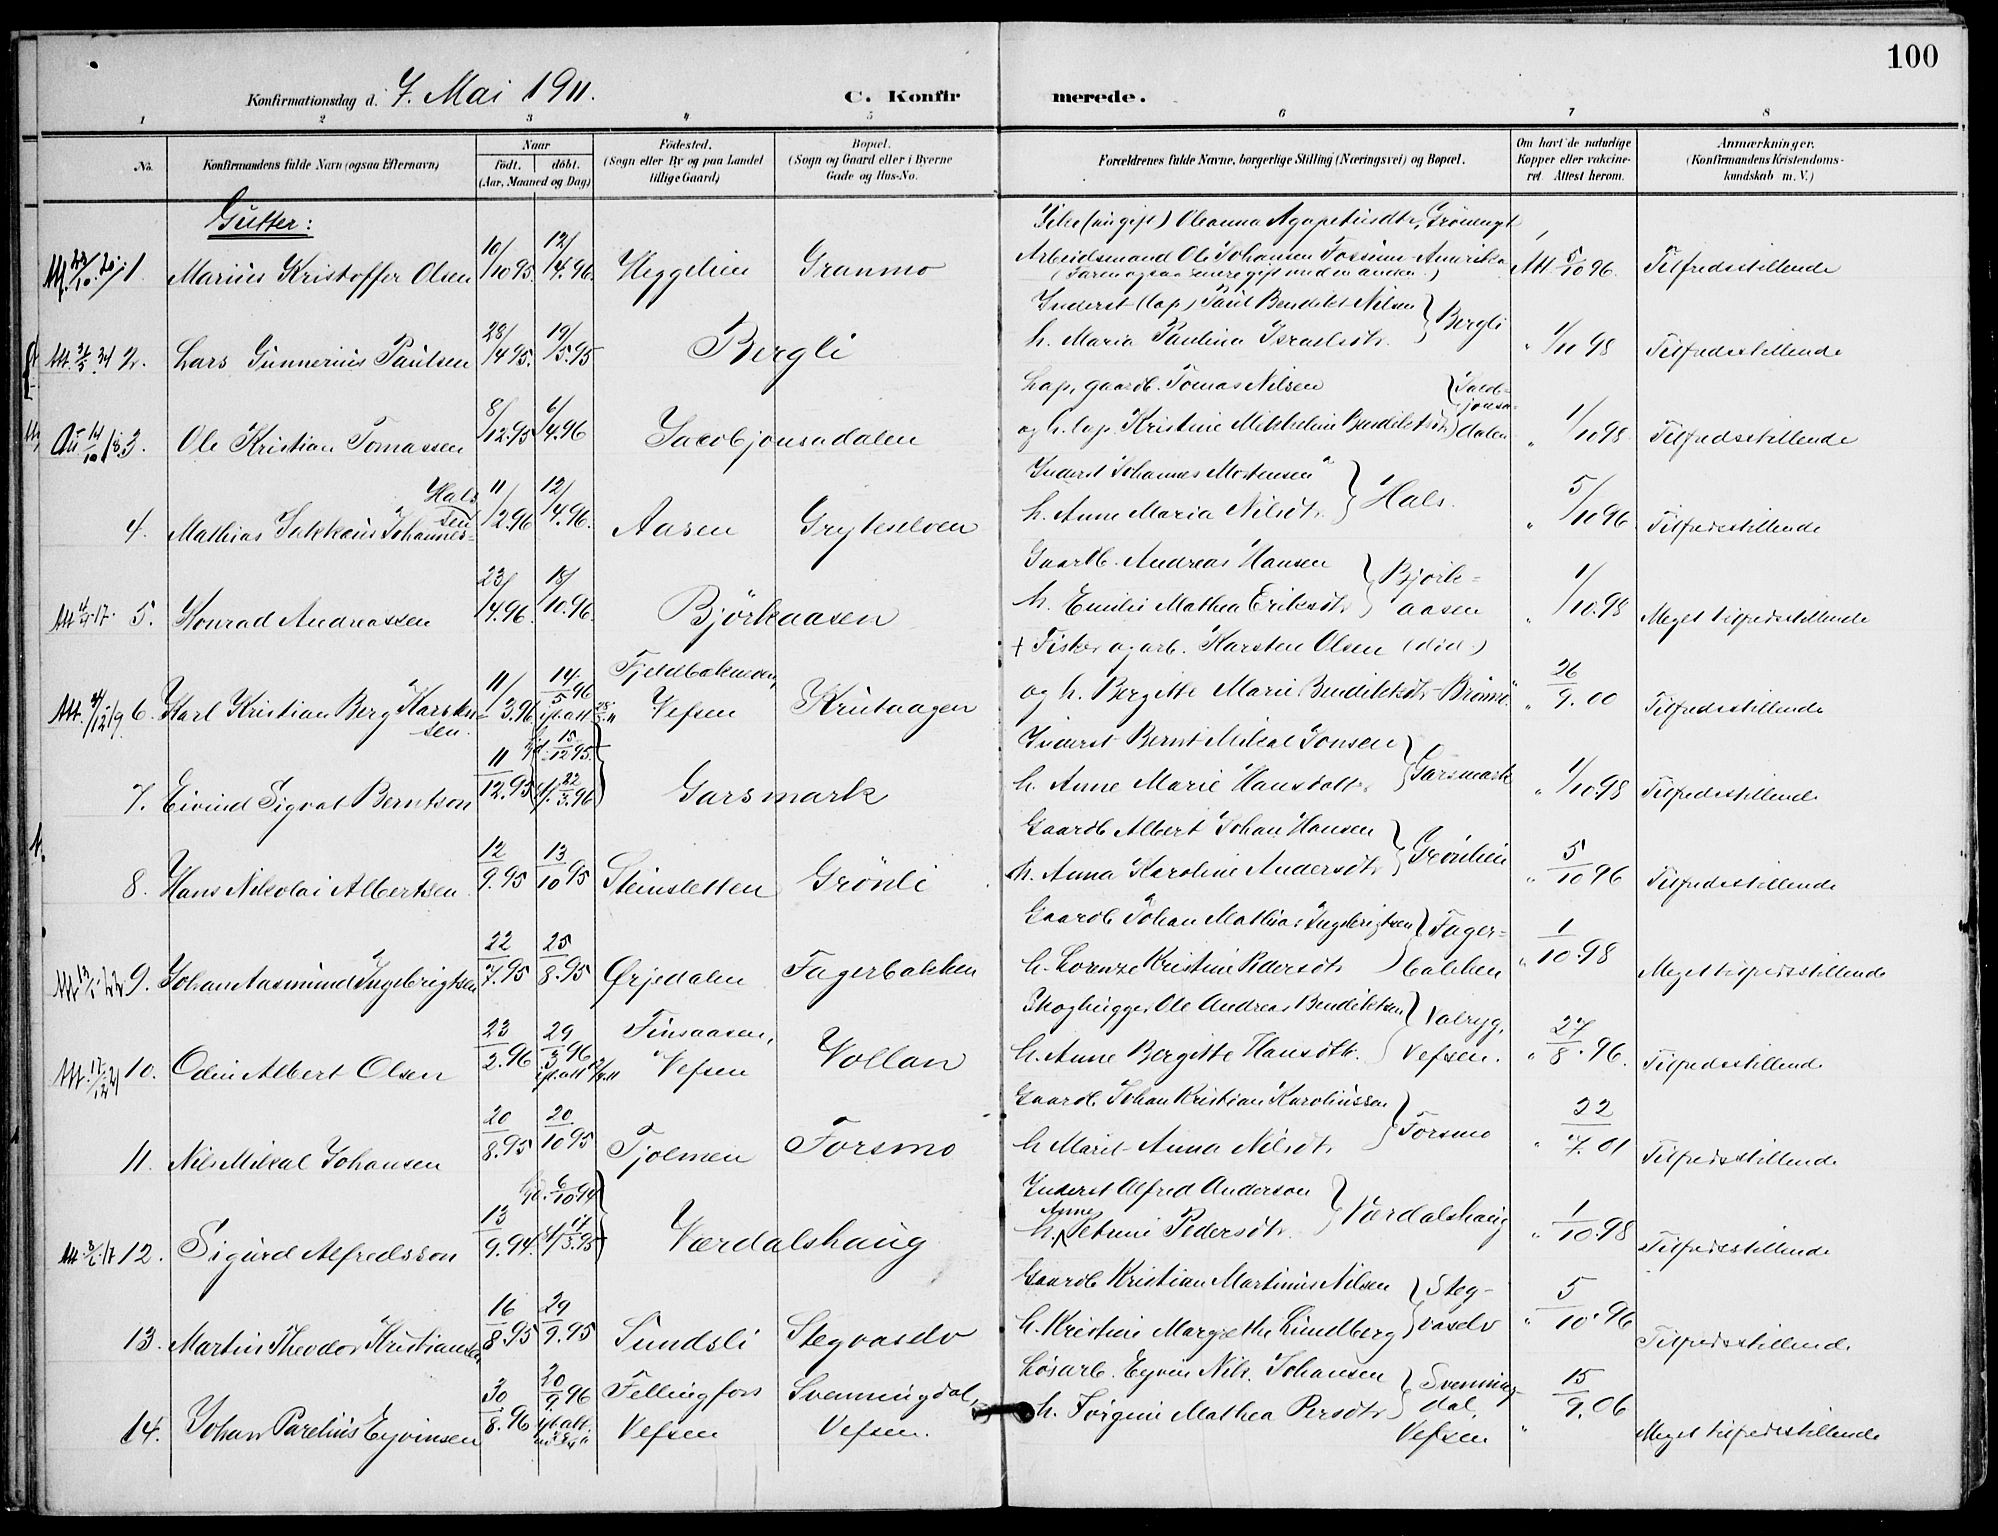 100
Konfirmationsdag d. 7. Mai 1911. C. Konfirmerede.
1 2 3 4 5 6 7 8
No. Konfirmandens fulde Navn (ogsaa Efternavn) Naar født. døbt. (Aar, Maaned og Dag) Fødested. (Sogn eller By og paa Landet tillige Gaard) Bopæl. (Sogn og Gaard eller i Byerne Gade og Hus-No. Forældrenes fulde Navne, borgerlige Stilling (Næringsvei) og Bopæl. Om havt de naturlige Kopper eller vakcineret. Attest herom. Anmærkninger. (Konfirmandens Kristendomskundskab m. V.)
Gutter:
Pike (ugift) Oleanna Agapetusdtr,
1. Marius Kristoffer Olsen 10/10 95. 12/4. 96. Heggelien Granmo Arbeidsmand Ole Johansen Fossum Amerika Att. 5/10 96. Tilfredsstillende
Inderst (lap) Paul Bendikt Nilsen
2. Lars Gunnerius Paulsen 28/4 95. 19/5. 95 Bergli h. Maria Paulina Israelsdtr. Bergli " 1/10 98 Tilfredsstillende
Lap, gaardb. Tomas Nilsen
3. Ole Kristian Tomassen 8/12. 95 6/4. 96 Jacobjonsadalen og h. lap. Kristine Mikkeline Bendiktsdtr dalen " 1/10 98. Tilfredsstillende
Inderst Johannes Mortensen
4. Mathias Sakkæus Johannessen Hals 11/2. 96 12/4. 96. Aasen Grytselven h. Anne Maria Nilsdtr. Hals. " 5/10 96 Tilfredsstillende
Gaardb. Andreas Hansen
5. Konrad Andreassen 23/4. 96. 18/10. 96. Bjørkaasen h. Emilie Mathea Eriksdtr. Bjørkaasen " 1/10. 98 Meget tilfredsstillende
+ Fisker og arb. Karsten Olsen (død.)
6. Karl Kristian Berg Karstensen. 11/3. 96 14/5 96 ifl. att. Fjeldbakmoen, Vefsen Krutaagen og h. Bergitte Marie Bendiktsdtr. Brønnø " 26/9. 00 Tilfredsstillende
Inderst Bernt Mikal Jonsen
7. Eivind Sigvat Berntsen 11/12. 95 15/12 95. 22/3. 96 Garsmark h. Anne Marie Hansdatter Garsmark " 1/10. 98 Tilfredsstillende
Gaardb. Albert Johan Hansen
8. Hans Nikolai Albertsen 12/9. 95 13/10 95 Steinsletten Grønli h. Anna Karoline Andersdtr. Grønlien " 5/10 96 Tilfredsstillende
Gaardb. Johan Mathias Ingebrigtsen
9. Johan Aasmund Ingebrigtsen 22/7. 95 25/8. 95 Ørjedalen Fagerbakken h. Lorenze Kristine Pedersdtr Fagerbakken " 1/10. 98 Meget tilfredsstillende
Skoghugger Ole Andreas Bendiktsen
10. Odin Albert Olsen 23/2. 96 29/3 96 ifl. att. Finsaasen, Vefsen Vollan h. Anne Bergitte Hansdtr. Valryg, Vefsen. " 27/8. 96. Tilfredsstillende
Gaardb. Johan Kristian Karoliussen
11. Nils Mikal Johansen 20/8. 95 20/10 95 Fjolmen Forsmo h. Marit Anna Nilsdtr. Forsmo " 22/7. 01 Tilfredsstillende
Inderst Alfred Anderson
12. Sigurd Alfredsson 13/9. 94. 6/10 94 17/3. 95 Værdalshaug h. Anne Petrine Pedersdtr. Værdalshaug " 1/10. 98 Tilfredsstillende
Gaardb. Kristian Martinus Nilsen
13. Martin Theodor Kristiansen 16/8. 95 29/9. 95 Sundsli Stegvaselv h. Kristine Margrethe Lundberg Stegvaselv " 5/10. 96 Tilfredsstillende
Løsarb. Eyvin Nils. Johansen
14. Johan Parelius Eyvinsen 30/8. 96 20/9. 96 ifl. att. Fellingfors Vefsen Svenningdal, Vefsen. h. Jørgine Mathea Persdtr. Svenningdal, Vefsen " 15/9. 06 Meget tilfredsstillende